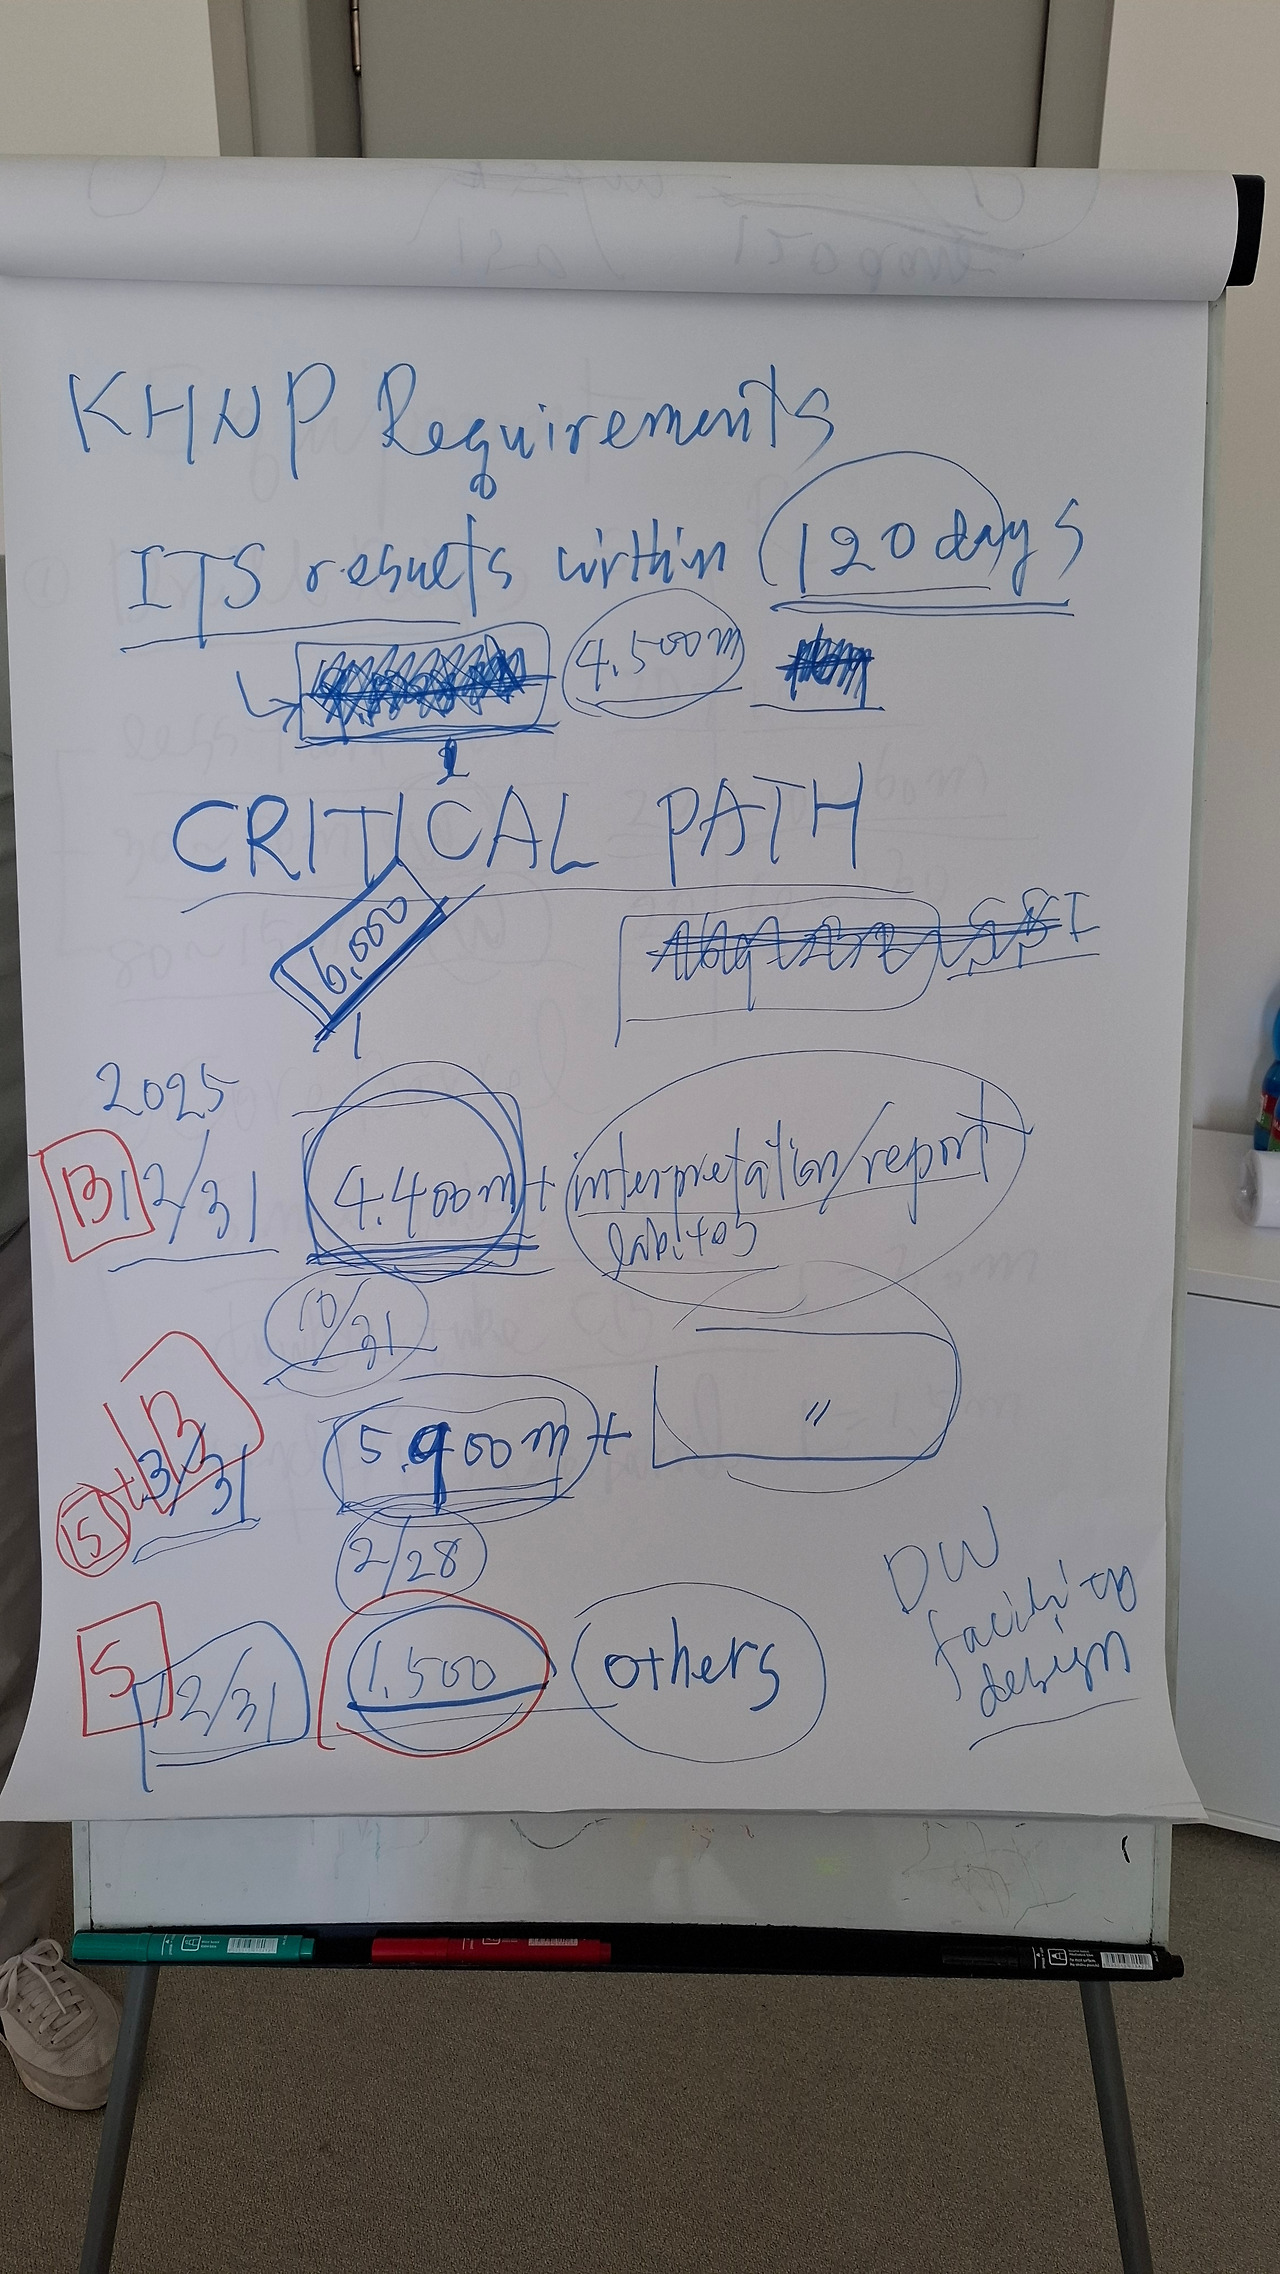 KHNP Requirements
ITS results within 120 days
4.500m
CRITICAL PATH
6,000
SSI
2025
13 12/31 4.400m + interpretation/report
10/31
13
5 + 3/31 5.900m + "
2/28
5 12/31 1,500 others
DW
facility
design